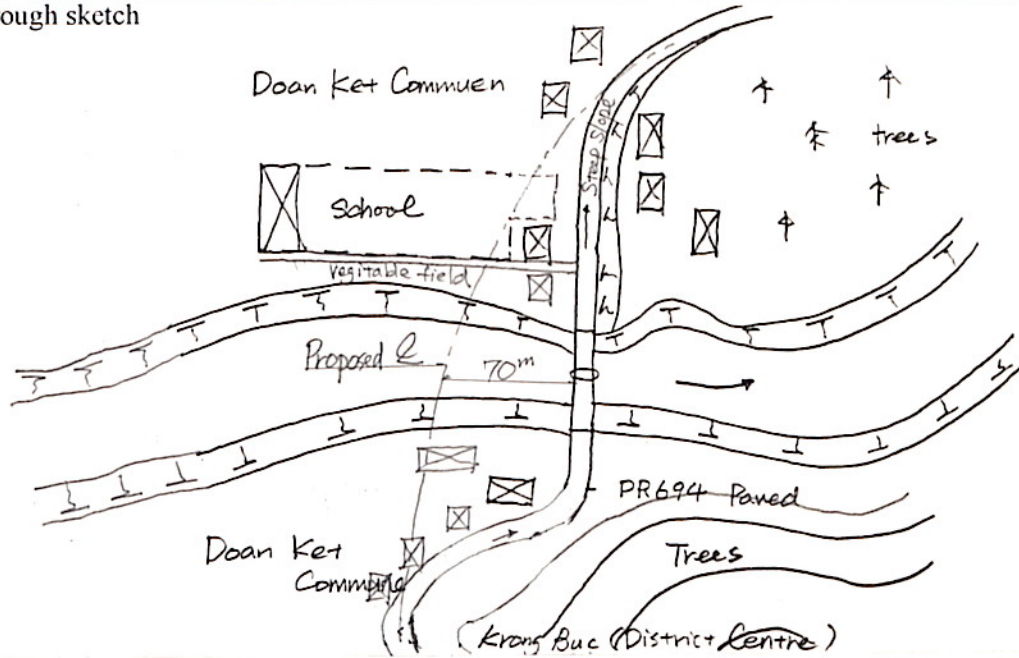 ough sketch
Doan Ket Commuen
Steep slope
trees
School
vegitable field
Proposed ℄
70m
PR694 Paved
Doan Ket
Commune
Trees
Krong Buc (District Centre)